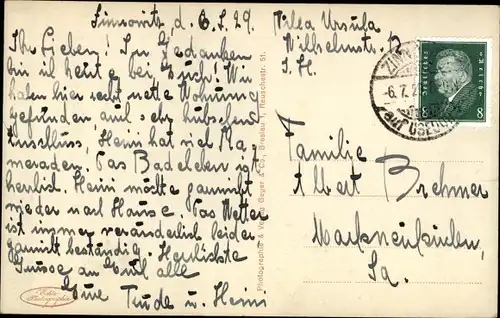 Zinnowitz d. 6.7.29.
Ihr Lieben! In Gedanken
bin ich heute bei Euch! Wir
haben hier recht nette Wohnung
gefunden, auch sehr hübschen
Anschluss, Heini hat viel Ka-
meraden. Das Badeleben ist
herrlich. Heini möchte garnicht
wieder nach Hause. Das Wetter
ist immer veränderlich leider
garnicht beständig. Herzlichste
Grüsse an Euch alle
Eure Trude u. Heini
Echte Photographie
Photographie & Verlag Geyer & Co., Breslau I, Reuschestr. 51.
Villa Ursula
Wilhelmstr. 12
Deutsches Reich
8
6.7.29
USEDOM
Familie
Albert Brehmer
Markneukirchen
Sa.